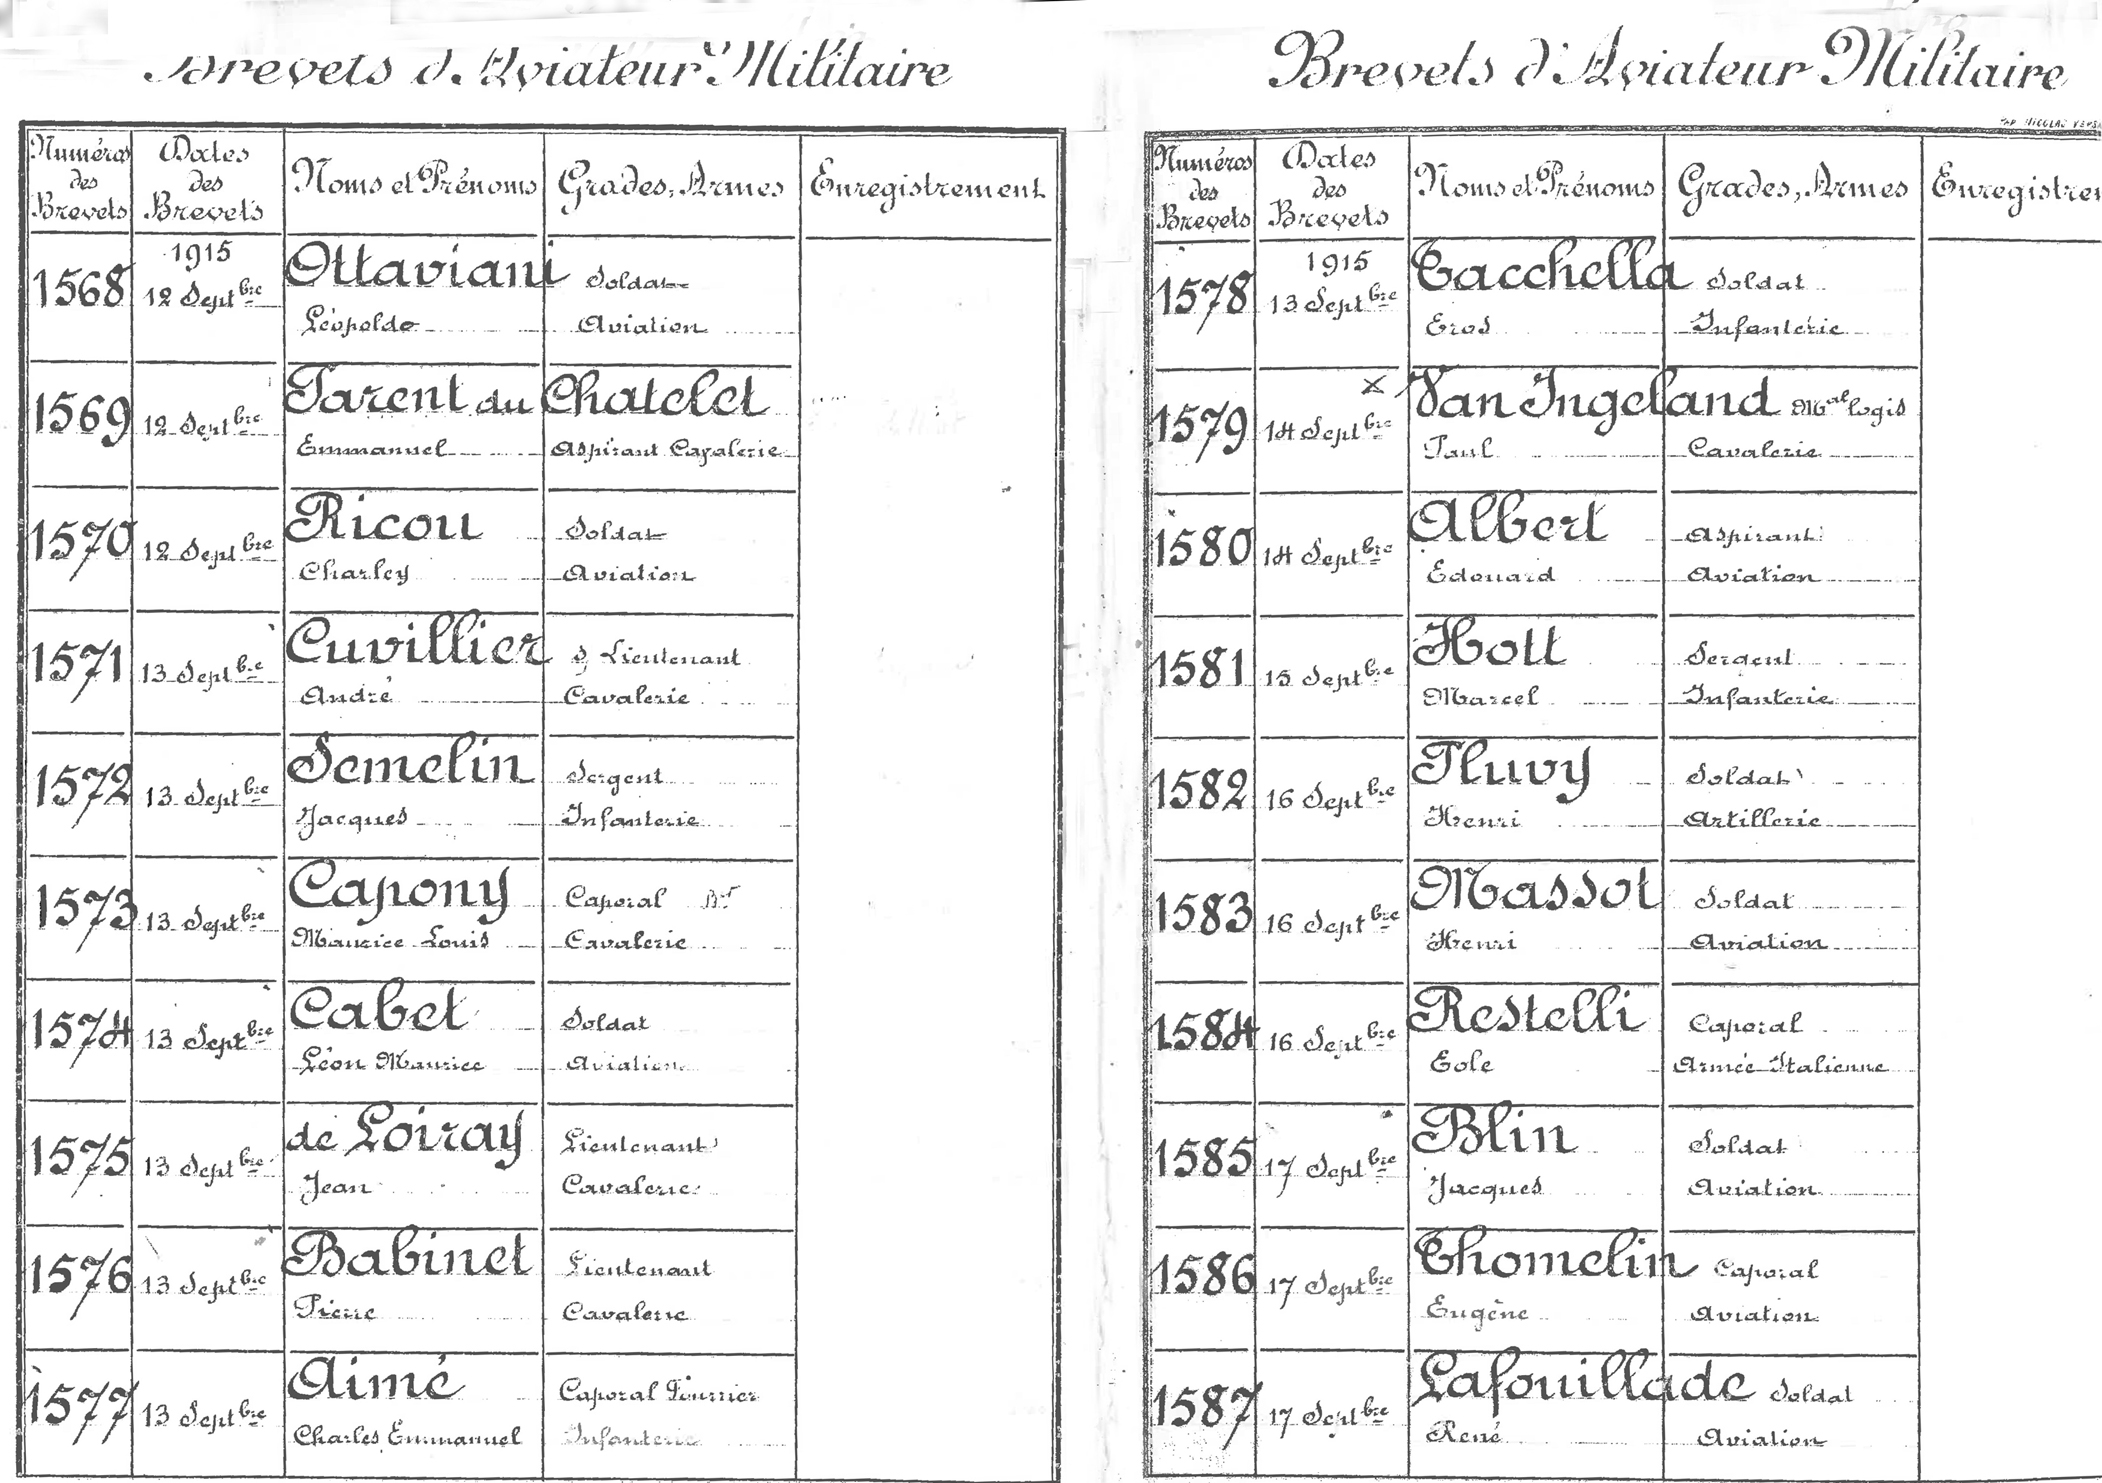 Brevets d'Aviateur Militaire
Numéros des Brevets
Dates des Brevets
Noms et Prénoms
Grades, Armes
Enregistrement
1568
1915
12 Sept bre
Ottaviani
Léopoldo
Soldat
Aviation
1569
12 Sept bre
Parent du Chatelet
Emmanuel
Aspirant Cavalerie
1570
12 Sept bre
Ricou
Charley
Soldat
Aviation
1571
13 Sept bre
Cuvillier
André
S/ Lieutenant
Cavalerie
1572
13 Sept bre
Semelin
Jacques
Sergent
Infanterie
1573
13 Sept bre
Capony
Maurice Louis
Caporal
Cavalerie
1574
13 Sept bre
Cabet
Léon Maurice
Soldat
Aviation
1575
13 Sept bre
de Loiray
Jean
Lieutenant
Cavalerie
1576
13 Sept bre
Babinet
Pierre
Lieutenant
Cavalerie
1577
13 Sept bre
Aimé
Charles Emmanuel
Caporal Fourrier
Infanterie
Brevets d'Aviateur Militaire
Numéros des Brevets
Dates des Brevets
Noms et Prénoms
Grades, Armes
Enregistrem
1578
1915
13 Sept bre
Tacchella
Eros
Soldat
Infanterie
1579
14 Sept bre
X
Van Ingeland
Paul
Mal logis
Cavalerie
1580
14 Sept bre
Albert
Edouard
Aspirant
Aviation
1581
15 Sept bre
Hott
Marcel
Sergent
Infanterie
1582
16 Sept bre
Pluvy
Henri
Soldat
Artillerie
1583
16 Sept bre
Massot
Henri
Soldat
Aviation
1584
16 Sept bre
Restelli
Eole
Caporal
Armée Italienne
1585
17 Sept bre
Blin
Jacques
Soldat
Aviation
1586
17 Sept bre
Thomelin
Eugène
Caporal
Aviation
1587
17 Sept bre
Lafouillade
René
Soldat
Aviation